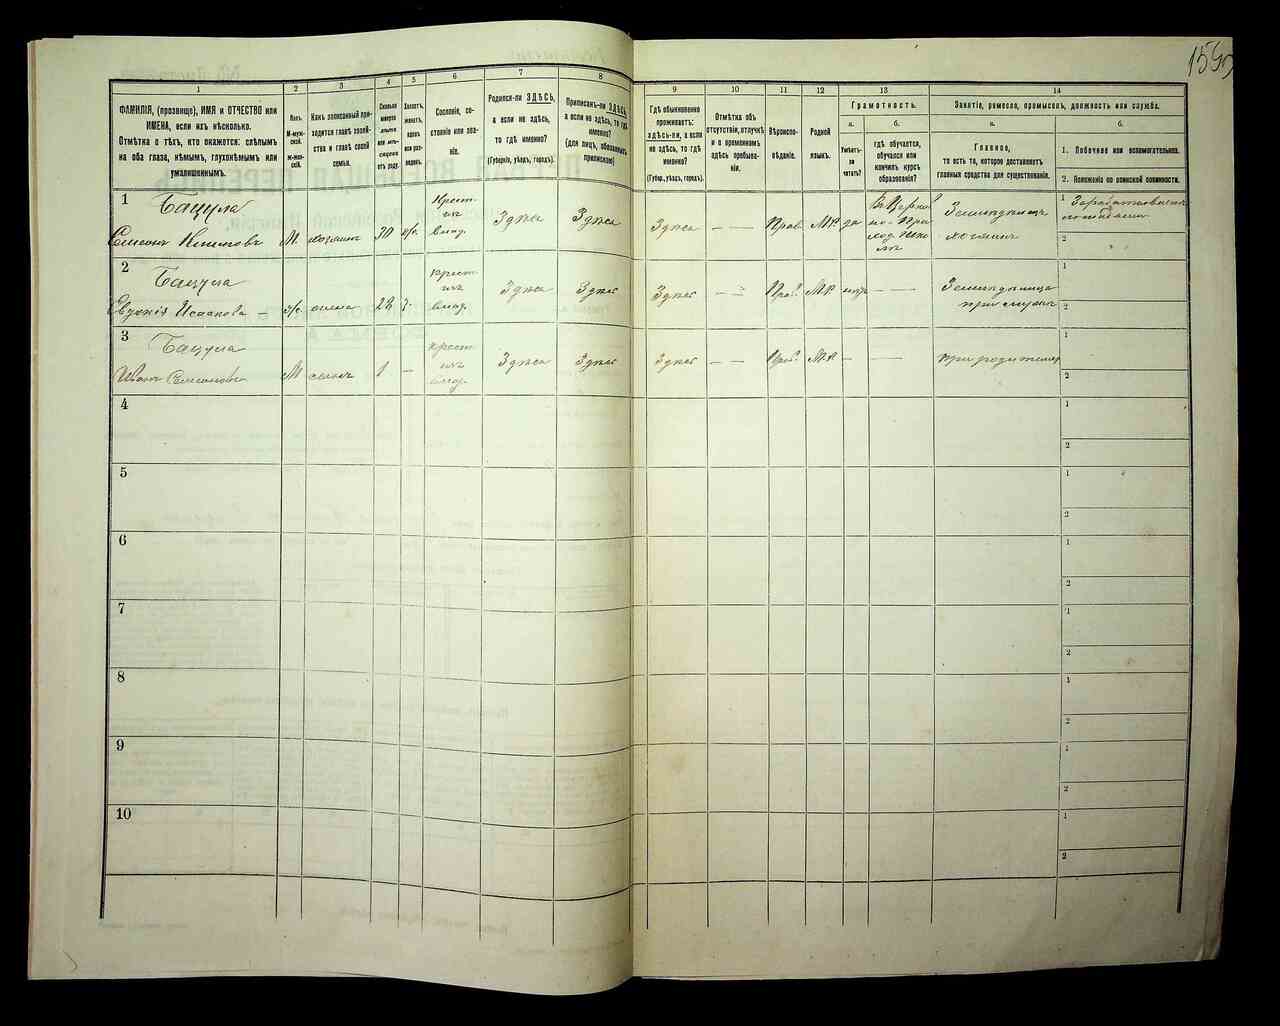 1
2
3
4
5
6
7
8
ФАМИЛІЯ, (прозвище), ИМЯ и ОТЧЕСТВО или
ИМЕНА, если ихъ нѣсколько.
Отмѣтка о тѣхъ, кто окажется: слѣпымъ
на оба глаза, нѣмымъ, глухонѣмымъ или
умалишеннымъ.
Полъ.
М-муж-
ской.
Ж-жен-
скій.
Какъ записанный при-
ходится главѣ хозяй-
ства и главѣ своей
семьи.
Сколько
минуло
лѣтъ
или мѣ-
сяцевъ
отъ роду.
Холостъ,
женатъ,
вдовъ
или раз-
веденъ.
Сословіе, со-
стояніе или зва-
ніе.
Родился-ли ЗДѢСЬ,
а если не здѣсь,
то гдѣ именно?
(Губернія, уѣздъ, городъ).
Приписанъ-ли ЗДѢСЬ,
а если не здѣсь, то гдѣ
именно?
(для лицъ, обязанныхъ
припискою)
1
Бацула
Семенъ Климовъ
М
хозяинъ
30
Крест-
Здѣсь
Здѣсь
2
Бацула
Евдокія Исаакова
жена
Крест-
Здѣсь
Здѣсь
3
Бацула
Иванъ Семеновъ
М
сынъ
1
—
Крест-
Здѣсь
Здѣсь
4
5
6
7
8
9
10
159
9
10
11
12
13
14
Гдѣ обыкновенно
проживаетъ:
здѣсь-ли, а если
не здѣсь, то гдѣ
именно?
(Губер., уѣздъ, городъ).
Отмѣтка объ
отсутствіи, отлучкѣ
и о временномъ
здѣсь пребыва-
ніи.
Вѣроиспо-
вѣданіе.
Родной
языкъ.
Грамотность.
а.
Умѣетъ-
ли
читать?
б.
гдѣ обучается,
обучался или
кончилъ курсъ
образованія?
Занятіе, ремесло, промыселъ, должность или служба.
а.
Главное,
то есть то, которое доставляетъ
главныя средства для существованія.
б.
1. Побочное или вспомогательное.
2. Положеніе по воинской повинности.
Здѣсь
— —
Прав.
М.Р.
да
Въ Церков-
но-При-
ход. Шко-
лѣ
хозяинъ
1
2
Здѣсь
— —
Прав.
М.Р.
1
2
Здѣсь
— —
Прав.
М.Р.
—
——
при родителяхъ
1
2
1
2
1
2
1
2
1
2
1
2
1
2
1
2